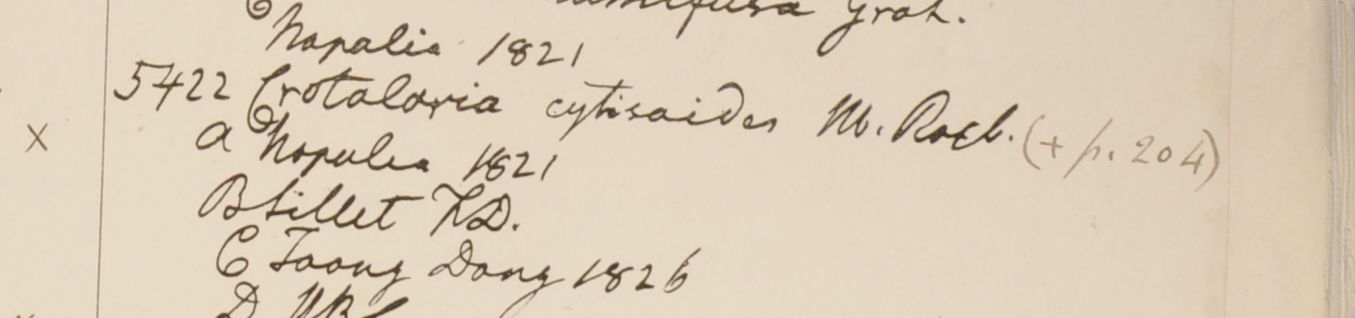 Grah.
Napalia 1821
5422 Crotalaria cytisoides W. Roxb. (+ p. 204)
a Napalia 1821
B Sillet F.D.
C Taong Dong 1826
D HBC